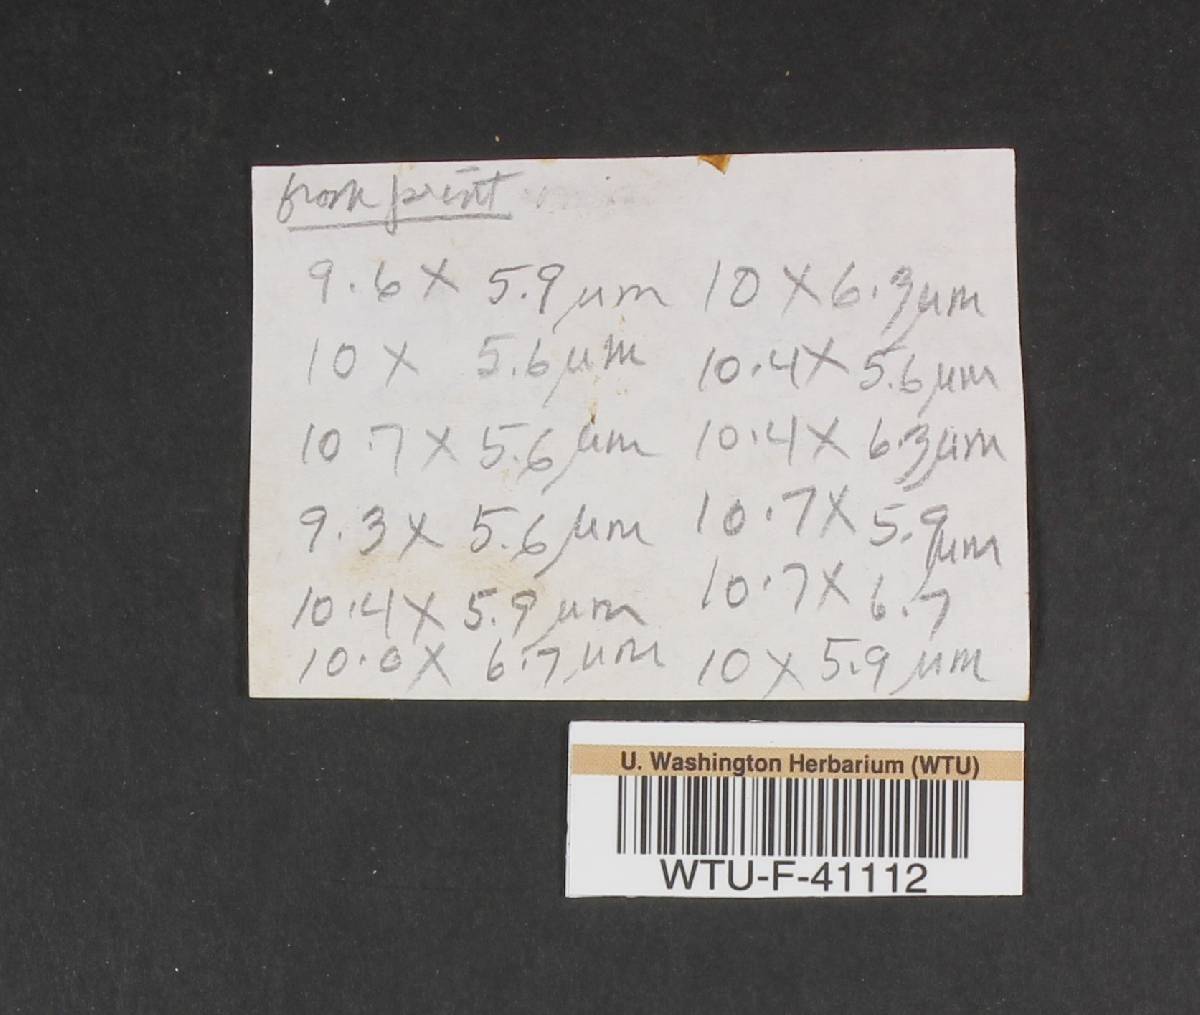 from print
9.6 X 5.9 µm 10 X 6.3 µm
10 X 5.6 µm 10.4 X 5.6 µm
10.7 X 5.6 µm 10.4 X 6.3 µm
9.3 X 5.6 µm 10.7 X 5.9 µm
10.4 X 5.9 µm 10.7 X 6.7
10.0 X 6.7 µm 10 X 5.9 µm
U. Washington Herbarium (WTU)
WTU-F-41112